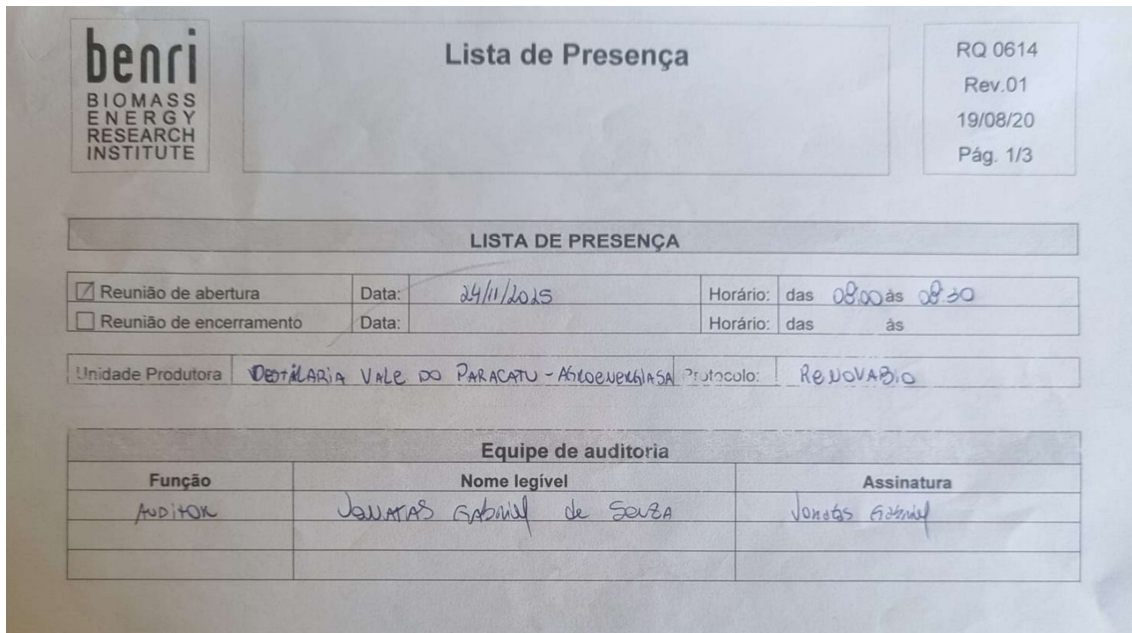 benri
BIOMASS
ENERGY
RESEARCH
INSTITUTE
Lista de Presença
RQ 0614
Rev.01
19/08/20
Pág. 1/3
LISTA DE PRESENÇA
Reunião de abertura Data: 24/11/2025 Horário: das 08:00 às 08:30
Reunião de encerramento Data: Horário: das às
Unidade Produtora DESTILARIA VALE DO PARACATU - AGROENERGIA SA Protocolo: RENOVABIO
Equipe de auditoria
Função Nome legível Assinatura
AUDITOR JONATAS GABRIEL de SOUZA Jonatas Gabriel